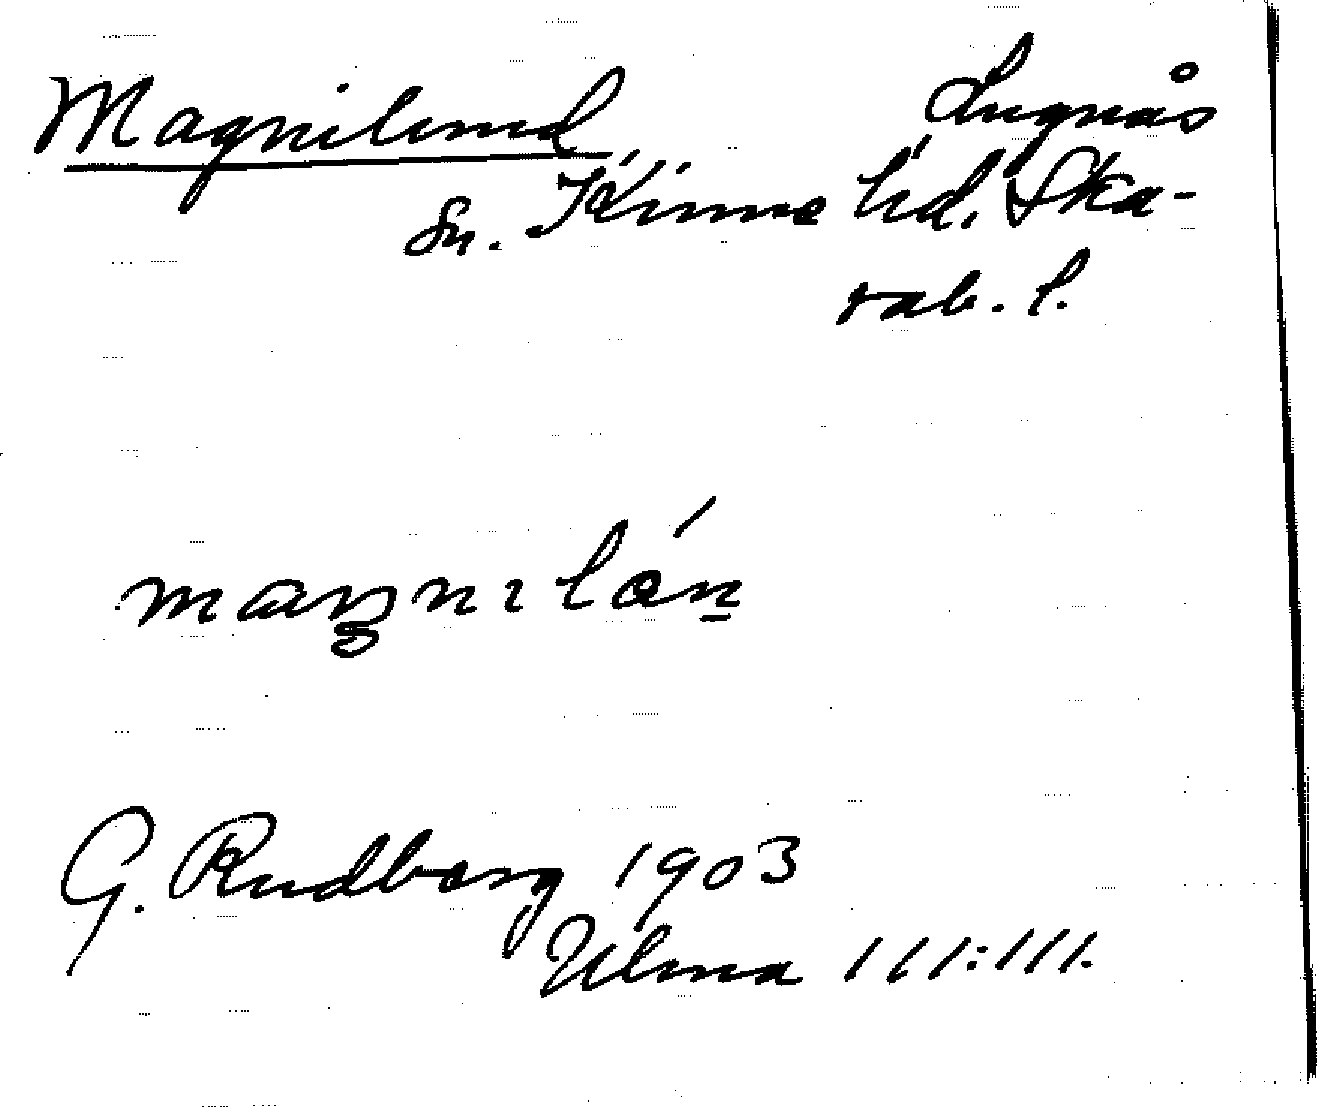 Magnilund Lugnås
sn. Kinne hd. Ska-
rab. l.
maŋnɩlón̠
G. Rudberg 1903
Ulma 111:111.